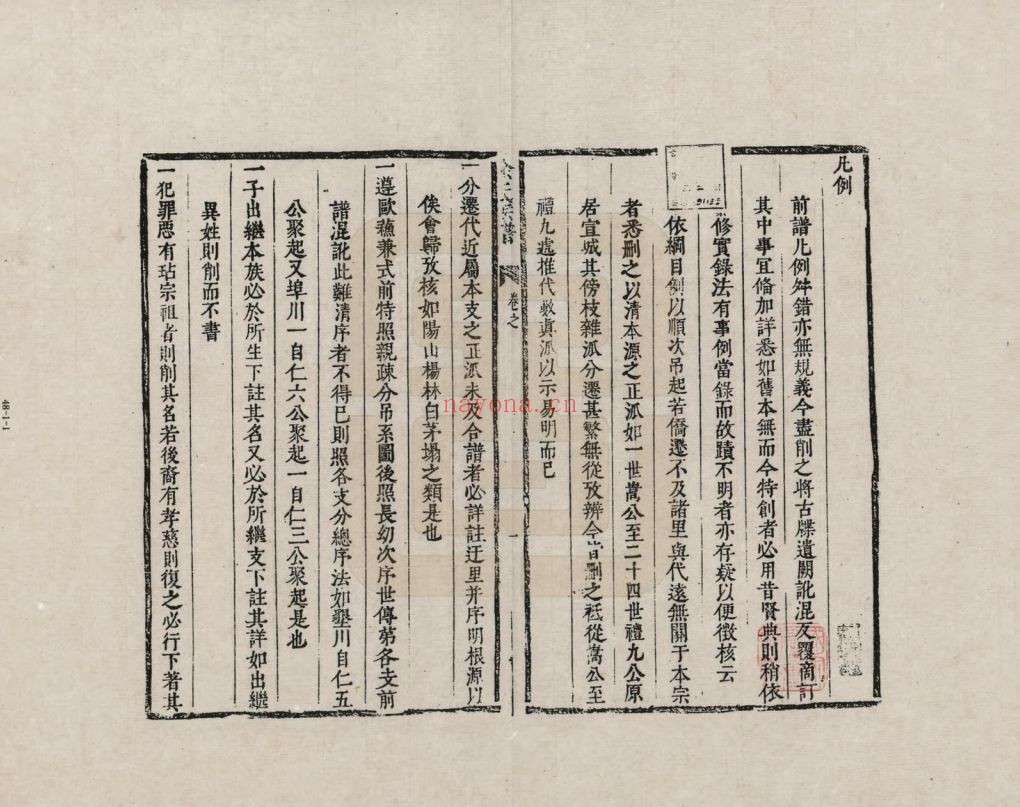 凡例
前譜凡例舛錯亦無規義今盡削之將古牒遺闕訛混反覆商訂
其中事宜俻加詳悉如舊本無而今特創者必用昔賢典則稍依
修實錄法有事例當錄而故蹟不明者亦存疑以便徵核云
依綱目例以順次吊起若僑遷不及諸里與代遠無關于本宗
者悉刪之以清本源之正派如一世嵩公至二十四世禮九公原
居宣城其傍枝雜派分遷甚繁無從攷辨今皆刪之秪從嵩公至
禮九遞推代數真派以示易明而已
卷之
一
一分遷代近屬本支之正派未及合譜者必詳註迂里并序明根源以
俟會歸攷核如陽山楊林白茅塌之類是也
一遵歐蘇兼式前特照親疎分吊系圖後照長幼次序世傳第各支前
譜混訛此難清序者不得已則照各支分總序法如壟川自仁五
公聚起又埠川一自仁六公聚起一自仁三公聚起是也
一子出繼本族必於所生下註其名又必於所繼支下註其詳如出繼
異姓則削而不書
一犯罪惡有玷宗祖者則削其名若後裔有孝慈則復之必行下著其
nayona.cn
48-1-1